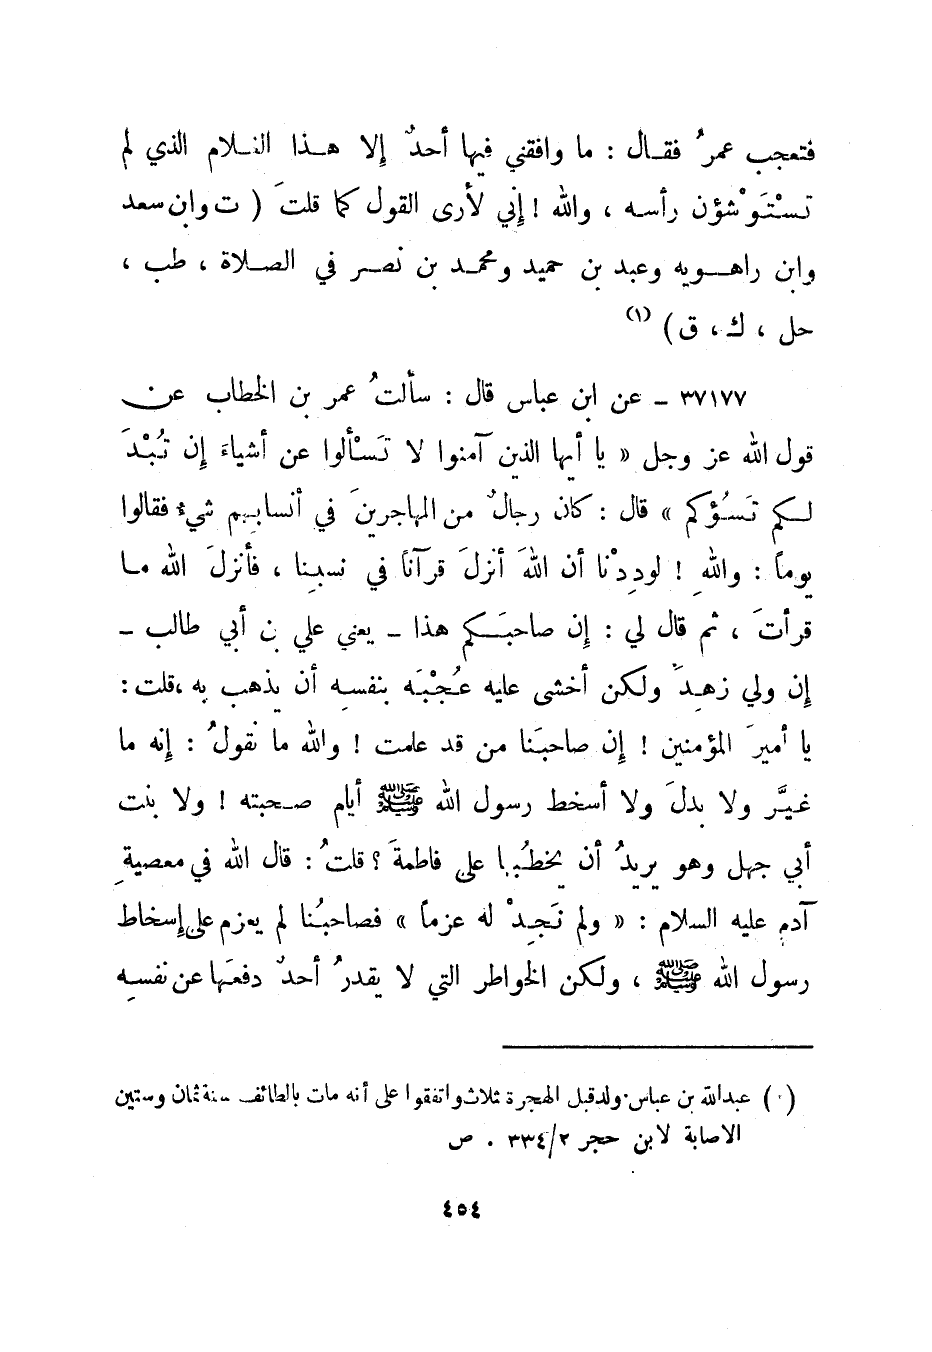 فتعجب عمرُ فقـال : ما وافقني فيها أحدٌ إلا هـذا الغـلام الذي لم
تستَوْ شؤن رأسه ، والله ! إني لأرى القول كما قلتَ ( ت وابن سعد
وابن راهـويه وعبد بن حميد ومحمـد بن نصـر في الصـلاة ، طب ،
حل ، ك ، ق ) (١)
٣٧١٧٧ ــ عن ابن عباس قال : سألتُ عمر بن الخطاب عن
قول الله عز وجل « يا أيها الذين آمنوا لا تَسْألوا عن أشياءَ إن تُبْدَ
لـكم تَسُؤكم » قال : كان رجالٌ من المهاجرينَ في أنسابهم شيءٌ فقالوا
يوماً : واللهِ ! لودِدْنا أن اللهَ أنزلَ قرآناً في نسبِنا ، فأنزلَ الله مـا
قرأتَ ، ثم قال لي : إن صاحبَـكم هذا ــ يعني علي بن أبي طالب ــ
إن ولي زهـدَ ولكن أخشى عليه عُجْبَه بنفسه أن يذهب به ، قلت :
يا أميرَ المؤمنين ! إن صاحبَنا من قد علمت ! والله ما نقولُ : إنه ما
غـيَّر ولا بدلَ ولا أسخط رسول الله ﷺ أيام صـحبته ! ولا بنت
أبي جهل وهو يريدُ أن يخطُبها على فاطمةَ ؟ قلتُ : قال الله في معصيةِ
آدمِ عليه السلام : « ولم نَجِدْ له عزماً » فصاحبُنا لم يعزم على إسخاط
رسول الله ﷺ ، ولكن الخواطر التي لا يقدرُ أحدٌ دفعَها عن نفسه
(١) عبدالله بن عباس ولد قبل الهجرة ثلاث واتفقوا على أنه مات بالطائف سنة ثمان وستين
الاصابة لابن حجر ٢/٣٣٤ . ص
٤٥٤